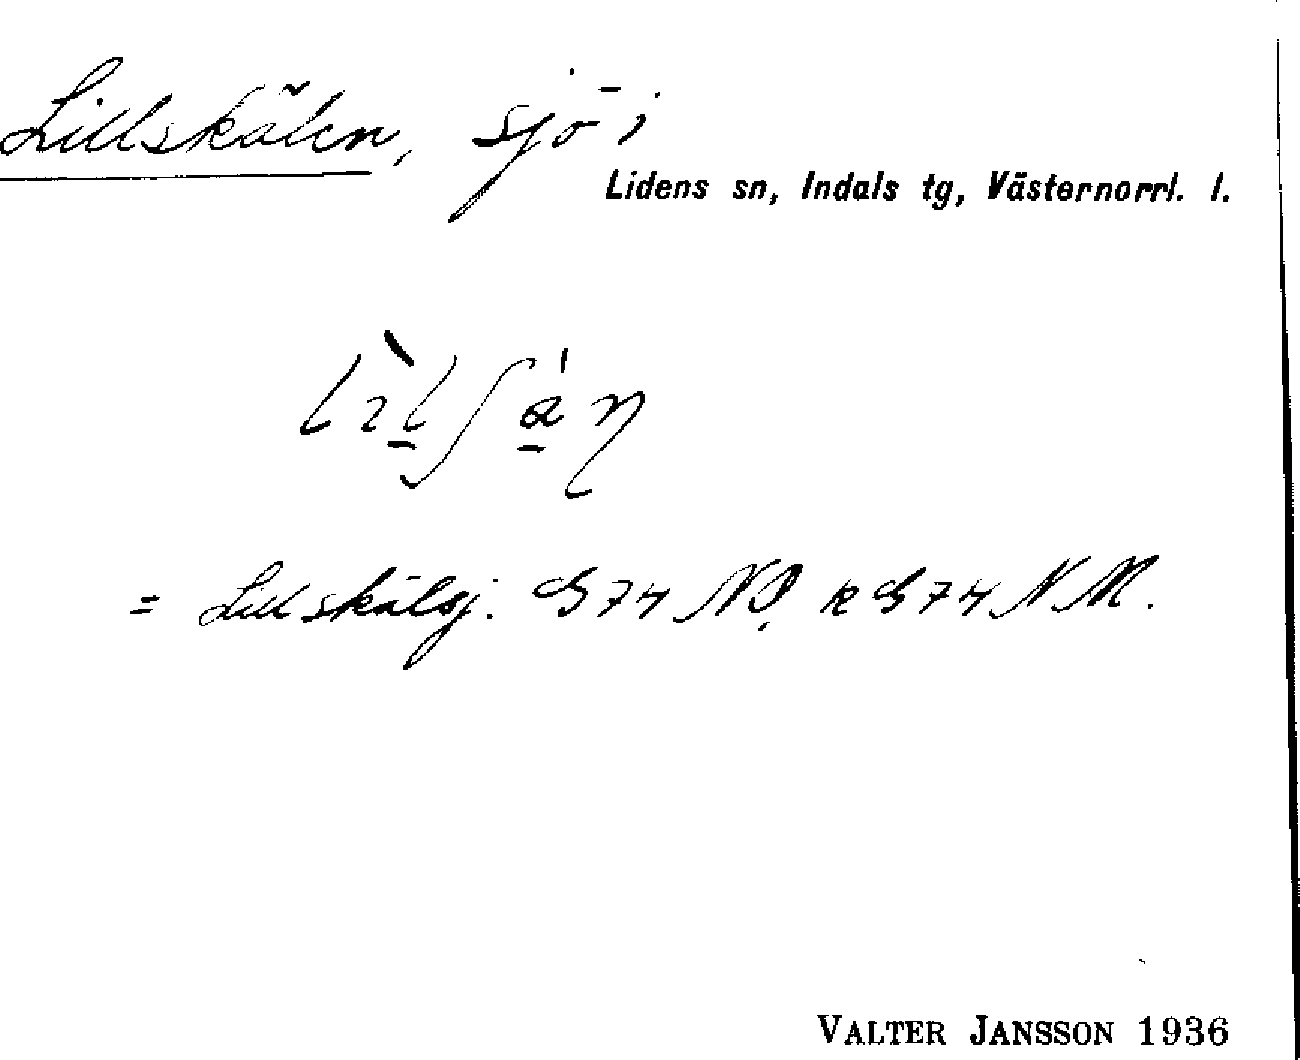 Lillskälen, sjö i
Lidens sn, Indals tg, Västernorrl. l.
= Lillskälsj. G 74 NO, k G 74 N M.
VALTER JANSSON 1936